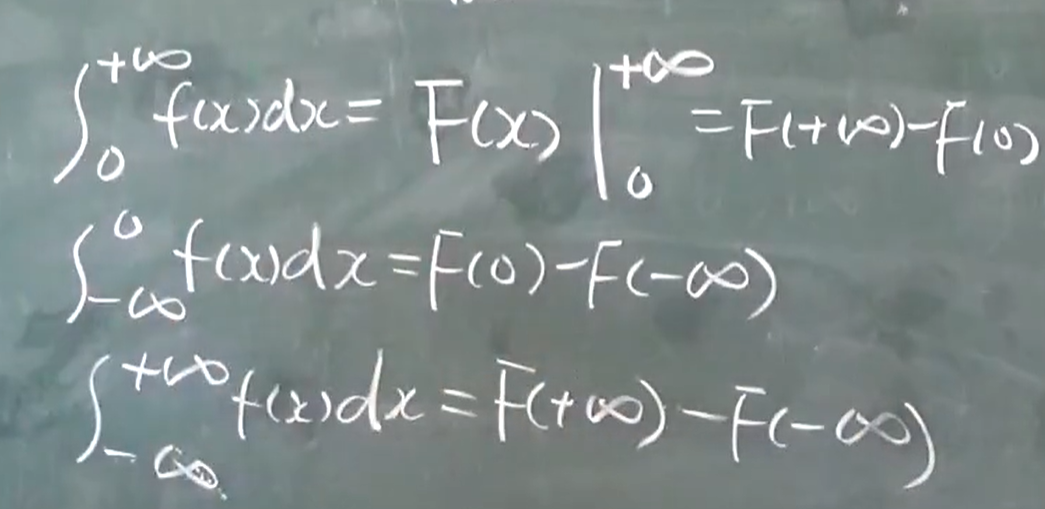 ∫₀^{+∞} f(x)dx = F(x) |₀^{+∞} = F(+∞) - F(0)
∫_{-∞}^0 f(x)dx = F(0) - F(-∞)
∫_{-∞}^{+∞} f(x)dx = F(+∞) - F(-∞)